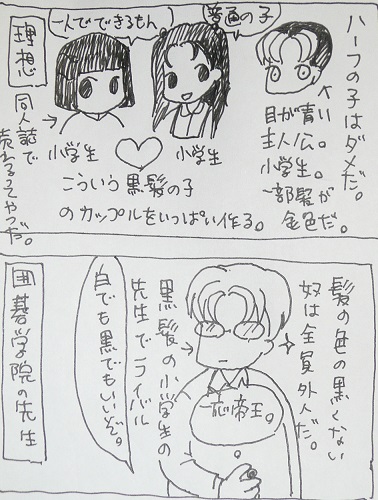 ハーフの子はダメだ。
目が青い
主人公。
小学生。
一部髪が
金色だ。
普通の子
一人でできるもん
理想
小学生
小学生
こういう黒髪の子
のカップルをいっぱい作る。
同人誌で
売れるってやつだ。
髪の色の黒くない
奴は全員外人だ。
一応帝王。
黒髪の小学生の
先生でライバル
白でも黒でもいいぞ。
囲碁学院の先生